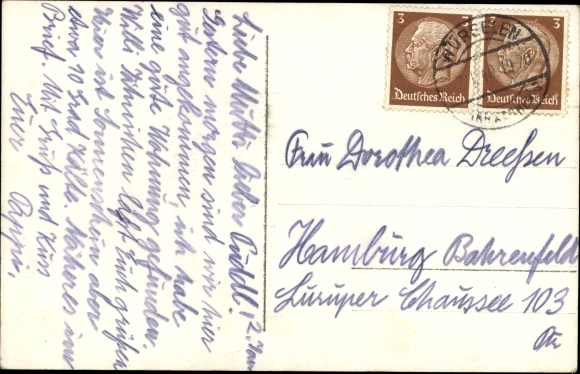 12. Jan.
Liebe Mutter, lieber Puddl!
Gestern morgen sind wir hier
gut angekommen, ich habe
eine gute Wohnung gefunden.
Willi lässt Euch grüßen
Hier ist Sonnenschein aber
etwa 10 Grad Kälte. Näheres im
Brief. Mit Gruß und Kuss
Euer Pappi.
3 3
Deutsches Reich Deutsches Reich
WÜRSELEN
Frau Dorothea Dreessen
Hamburg Bahrenfeld
Luruper Chaussee 103